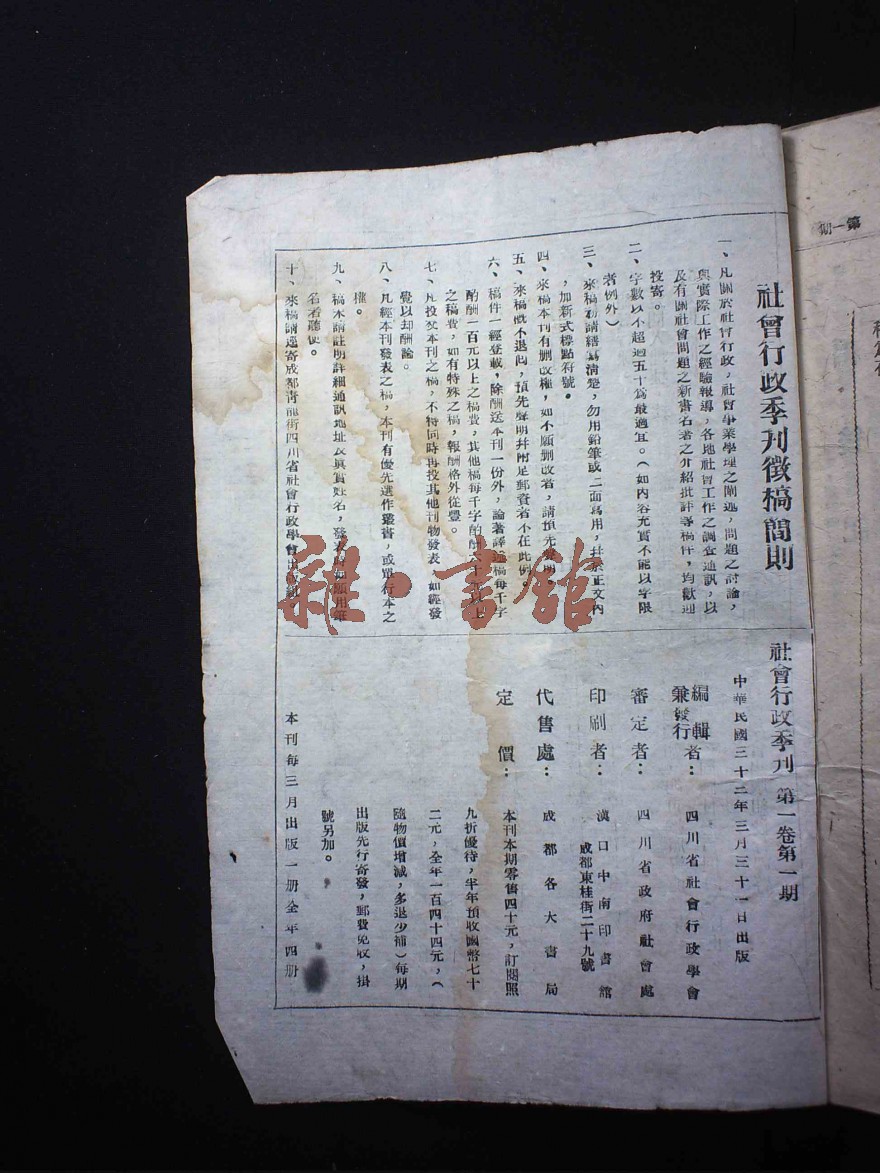 社會行政季刊徵稿簡則
一、凡關於社會行政，社會事業學理之闡述，問題之討論，
與實際工作之經驗報導，各地社會工作之調查通訊，以
及有關社會問題之新書名著之介紹批評等稿件，均歡迎
投寄。
二、字數以不超過五千為最適宜。（如內容充實不能以字限
者例外）
三、來稿務請繕寫清楚，勿用鉛筆或二面寫用，并
，加新式標點符號。
四、來稿本刊有刪改權，如不願刪改者，請預先聲明。
五、來稿概不退回，預先聲明并附足郵資者不在此例。
六、稿件一經登載，除酬送本刊一份外，論著譯述稿每千字
酌酬一百元以上之稿費，其他稿每千字酌酬六十元以上
之稿費，如有特殊之稿，報酬格外從豐。
七、凡投交本刊之稿，不得同時再投其他刊物發表，如經發
覺以却酬論。
八、凡經本刊發表之稿，本刊有優先選作叢書，或單行本之
權。
九、稿末請註明詳細通訊地址及真實姓名，發表時如願用筆
名者聽便。
十、來稿請逕寄成都青龍街四川省社會行政學會出版組
社會行政季刊 第一卷第一期
中華民國三十二年三月三十一日出版
編輯者兼發行：四川省社會行政學會
審定者：四川省政府社會處
印刷者：漢口中南印書館
成都東桂街二十九號
代售處：成都各大書局
定價：本刊本期零售四十元，訂閱照
九折優待，半年預收國幣七十
二元，全年一百四十四元，（
隨物價增減，多退少補）每期
出版先行寄發，郵費免收，掛
號另加。
本刊每三月出版一册全年四册
第一期
雜·書館